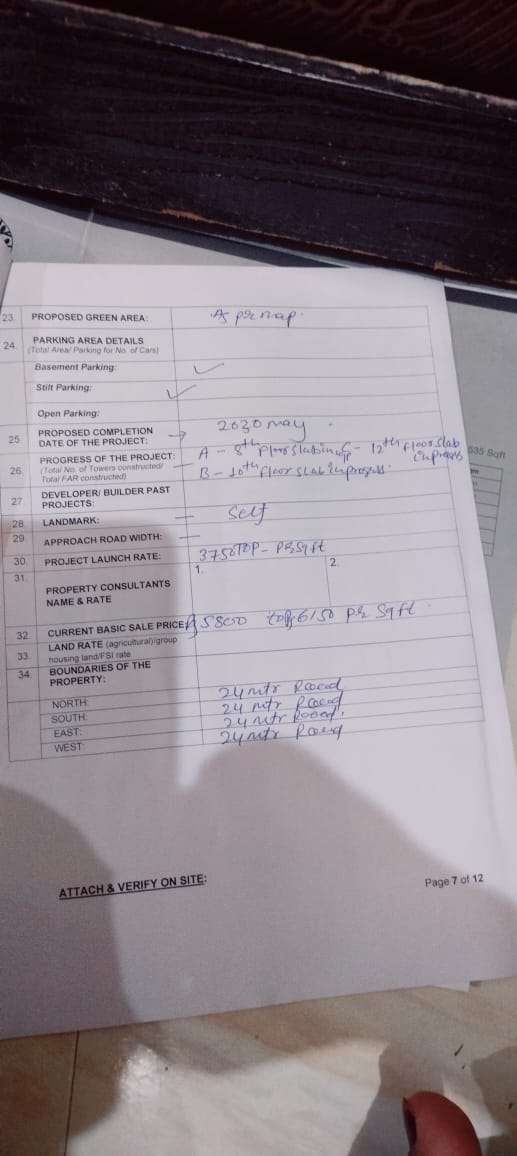 23. PROPOSED GREEN AREA: As per map.
24. PARKING AREA DETAILS
(Total Area/ Parking for No. of Cars)
Basement Parking: ✓
Stilt Parking: ✓
Open Parking:
25. PROPOSED COMPLETION
DATE OF THE PROJECT: → 2030 may.
26. PROGRESS OF THE PROJECT:
(Total No. of Towers constructed/
Total FAR constructed)
A - 8th Floor Slab C - 12th Floor Slab
B - 10th Floor Slab
535 Sqft
27. DEVELOPER/ BUILDER PAST
PROJECTS:
28. LANDMARK: — Self
29. APPROACH ROAD WIDTH: —
30. PROJECT LAUNCH RATE: 3750
31. PROPERTY CONSULTANTS
NAME & RATE
1. 2.
32. CURRENT BASIC SALE PRICE 5800 6150 per Sqft.
33. LAND RATE (agricultural)/group
housing land/FSI rate
34. BOUNDARIES OF THE
PROPERTY:
NORTH: 24 mtr Road
SOUTH: 24 mtr Road
EAST: 24 mtr Road.
WEST: 24 mtr Road
ATTACH & VERIFY ON SITE:
Page 7 of 12